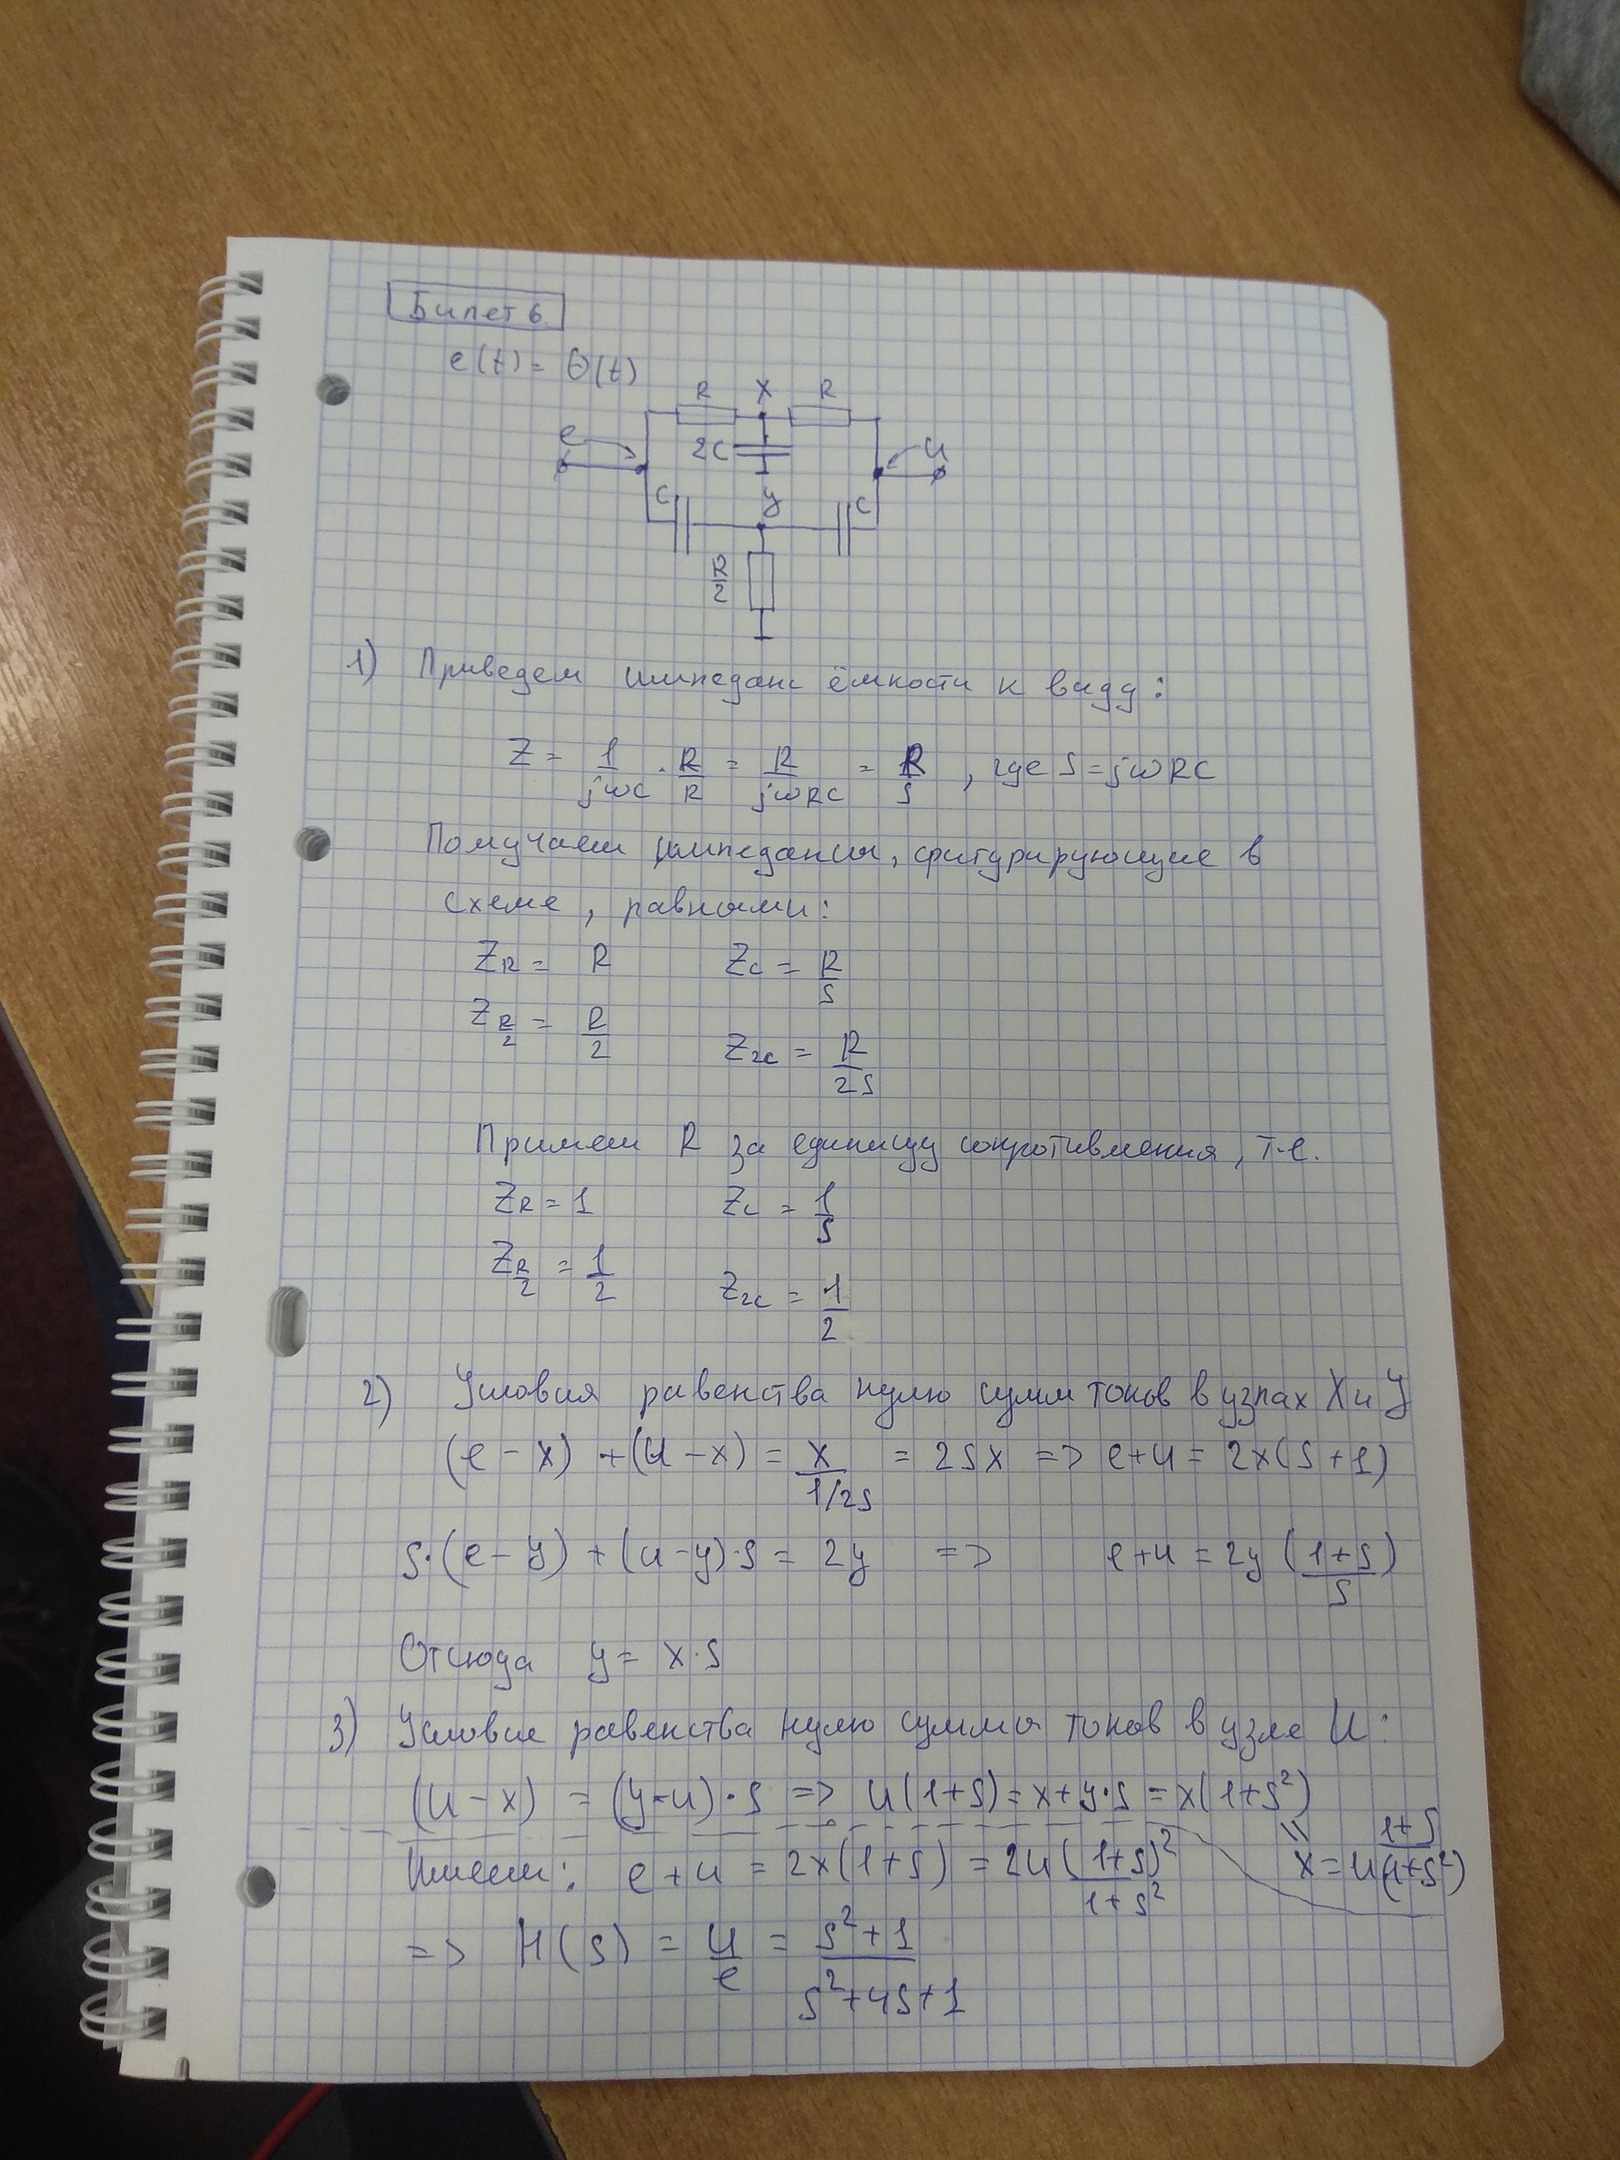 Билет 6.
e(t) = Θ(t)
R X R
e 2C u
C y C
R/2
1) Приведем импеданс ёмкости к виду:
Z = 1/jωC · R/R = R/jωRC = R/s , где s = jωRC
Получаем импедансы, фигурирующие в
схеме, равными:
Z_R = R Z_C = R/s
Z_R/2 = R/2 Z_2C = R/2s
Примем R за единицу сопротивления, т.е.
Z_R = 1 Z_C = 1/s
Z_R/2 = 1/2 Z_2C = 1/2
2) Условия равенства нулю сумм токов в узлах X и Y
(e - x) + (u - x) = x/(1/2s) = 2sx => e+u = 2x(s+1)
s·(e-y) + (u-y)·s = 2y => e+u = 2y((1+s)/s)
Отсюда y = x·s
3) Условие равенства нулю суммы токов в узле U:
(u - x) = (y-u)·s => u(1+s) = x+y·s = x(1+s²)
Имеем: e+u = 2x(1+s) = 2u (1+s)²/(1+s²) x = u (1+s)/(1+s²)
=> H(s) = u/e = (s²+1)/(s²+4s+1)